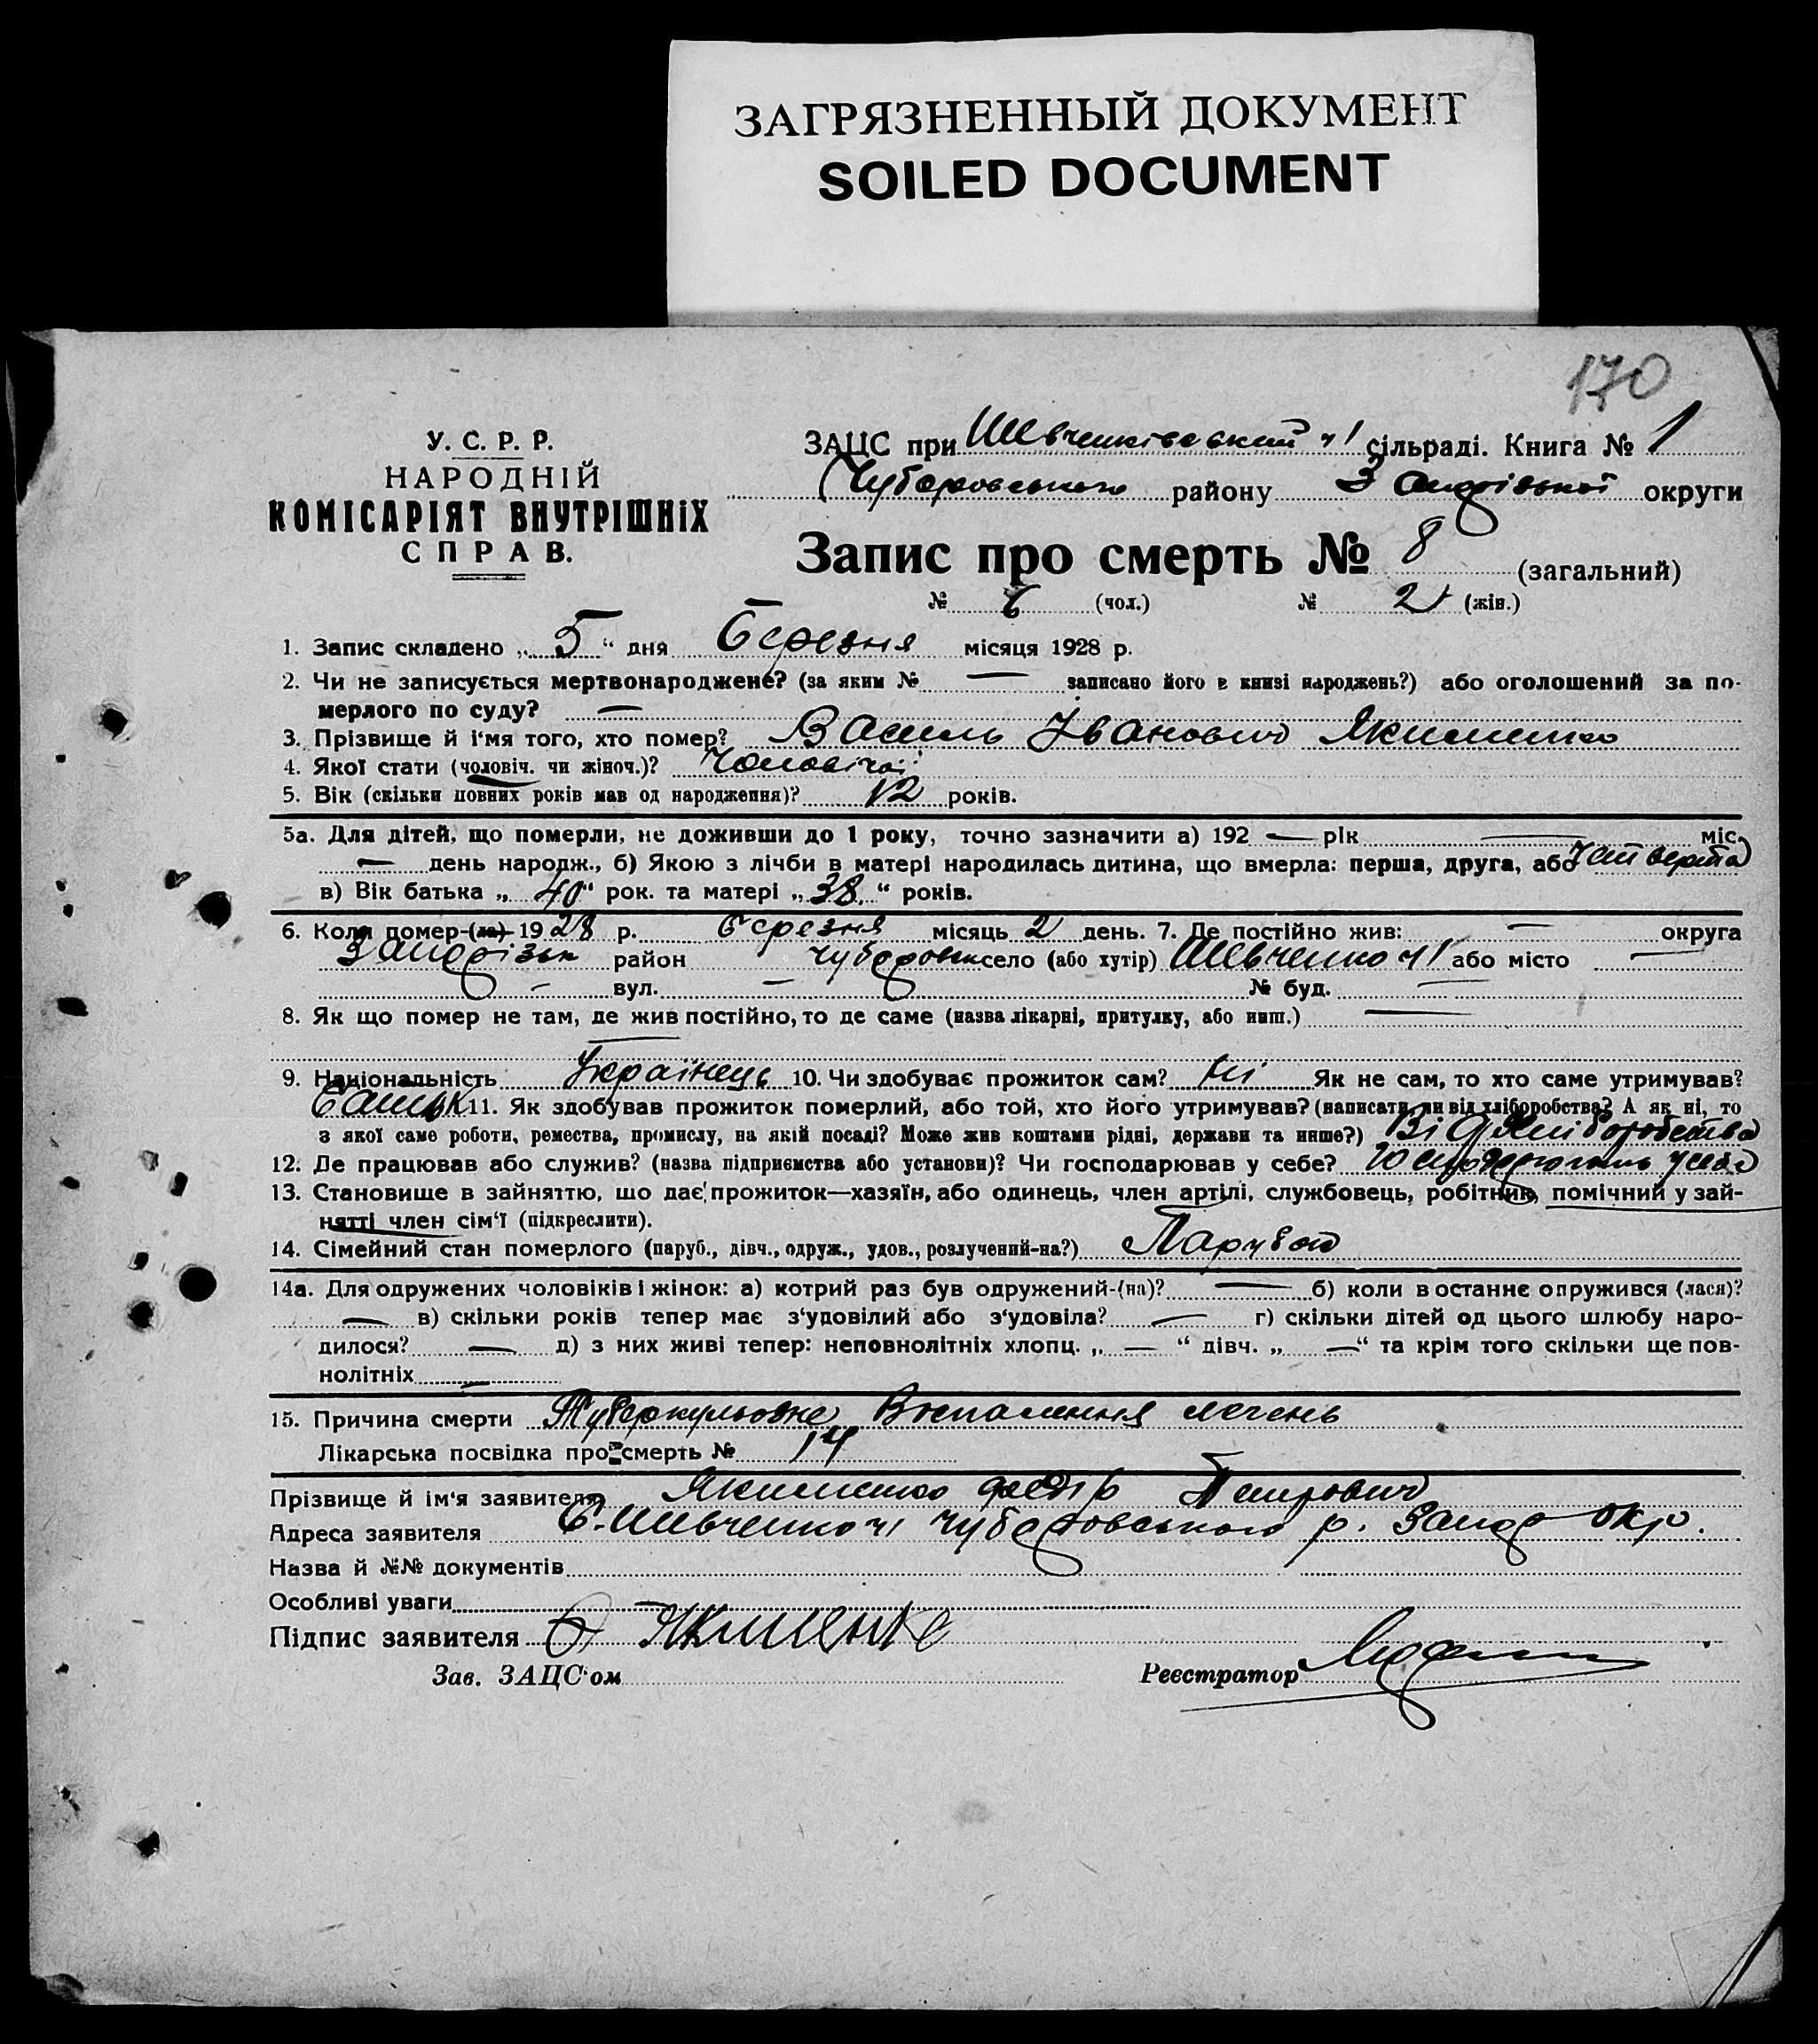 ЗАГРЯЗНЕННЫЙ ДОКУМЕНТ
SOILED DOCUMENT
170
У. С. Р. Р.
НАРОДНІЙ
КОМІСАРІЯТ ВНУТРІШНІХ
СПРАВ.
ЗАЦС при Шевченківський ч1 сільраді. Книга № 1
Чубаровського району Запорізької округи
Запис про смерть № 8 (загальний)
№ 6 (чол.) № 2 (жін.)
1. Запис складено „ 5 “ дня Березня місяця 1928 р.
2. Чи не записується мертвонароджене? (за яким № — записано його в книзі народжень?) або оголошений за по-
мерлого по суду? —
3. Прізвище й і'мя того, хто помер? Василь Іванович Якименко
4. Якої стати (чоловіч. чи жіноч.)? Чоловічої
5. Вік (скільки повних років мав од народження)? 12 років.
5а. Для дітей, що померли, не доживши до 1 року, точно зазначити а) 192 — рік — міс.
— день народж., б) Якою з лічби в матері народилась дитина, що вмерла: перша, друга, або Четверта
в) Вік батька „ 40 “ рок. та матері „ 38 “ років.
6. Коли помер-(ла) 1928 р. Березня місяць 2 день. 7. Де постійно жив: — округа
Запорізьк район Чубаровськ село (або хутір) Шевченко ч1 або місто —
— вул. — № буд. —
8. Як що помер не там, де жив постійно, то де саме (назва лікарні, притулку, або инш.) —
9. Національність Українець 10. Чи здобуває прожиток сам? Ні Як не сам, то хто саме утримував?
Батьк 11. Як здобував прожиток померлий, або той, хто його утримував? (написати чи від хліборобства? А як ні, то
з якої саме роботи, ремества, промислу, на якій посаді? Може жив коштами рідні, держави та инше?) Від Хліборобства
12. Де працював або служив? (назва підприємства або установи)? Чи господарював у себе? Господарював у себе
13. Становище в зайняттю, що дає прожиток—хазяїн, або одинець, член артілі, службовець, робітник, помічний у зай-
нятті член сім'ї (підкреслити).
14. Сімейний стан померлого (паруб., дівч., одруж., удов., розлучений-на?) Парубок
14а. Для одружених чоловіків і жінок: а) котрий раз був одружений-(на)? — б) коли в останнє опружився (лася)?
— в) скільки років тепер має з'удовілий або з'удовіла? — г) скільки дітей од цього шлюбу наро-
дилося? — д) з них живі тепер: неповнолітніх хлопц. „ — “ дівч. „ — “ та крім того скільки ще пов-
нолітніх —
15. Причина смерти Туберкульозне Воспалення легень
Лікарська посвідка про смерть № 14
Прізвище й ім'я заявителя Якименко Федір Петрович
Адреса заявителя С. Шевченко ч1 Чубаровського р. Запор Окр.
Назва й №№ документів
Особливі уваги
Підпис заявителя Ф Якименко
Зав. ЗАЦС'ом Реєстратор